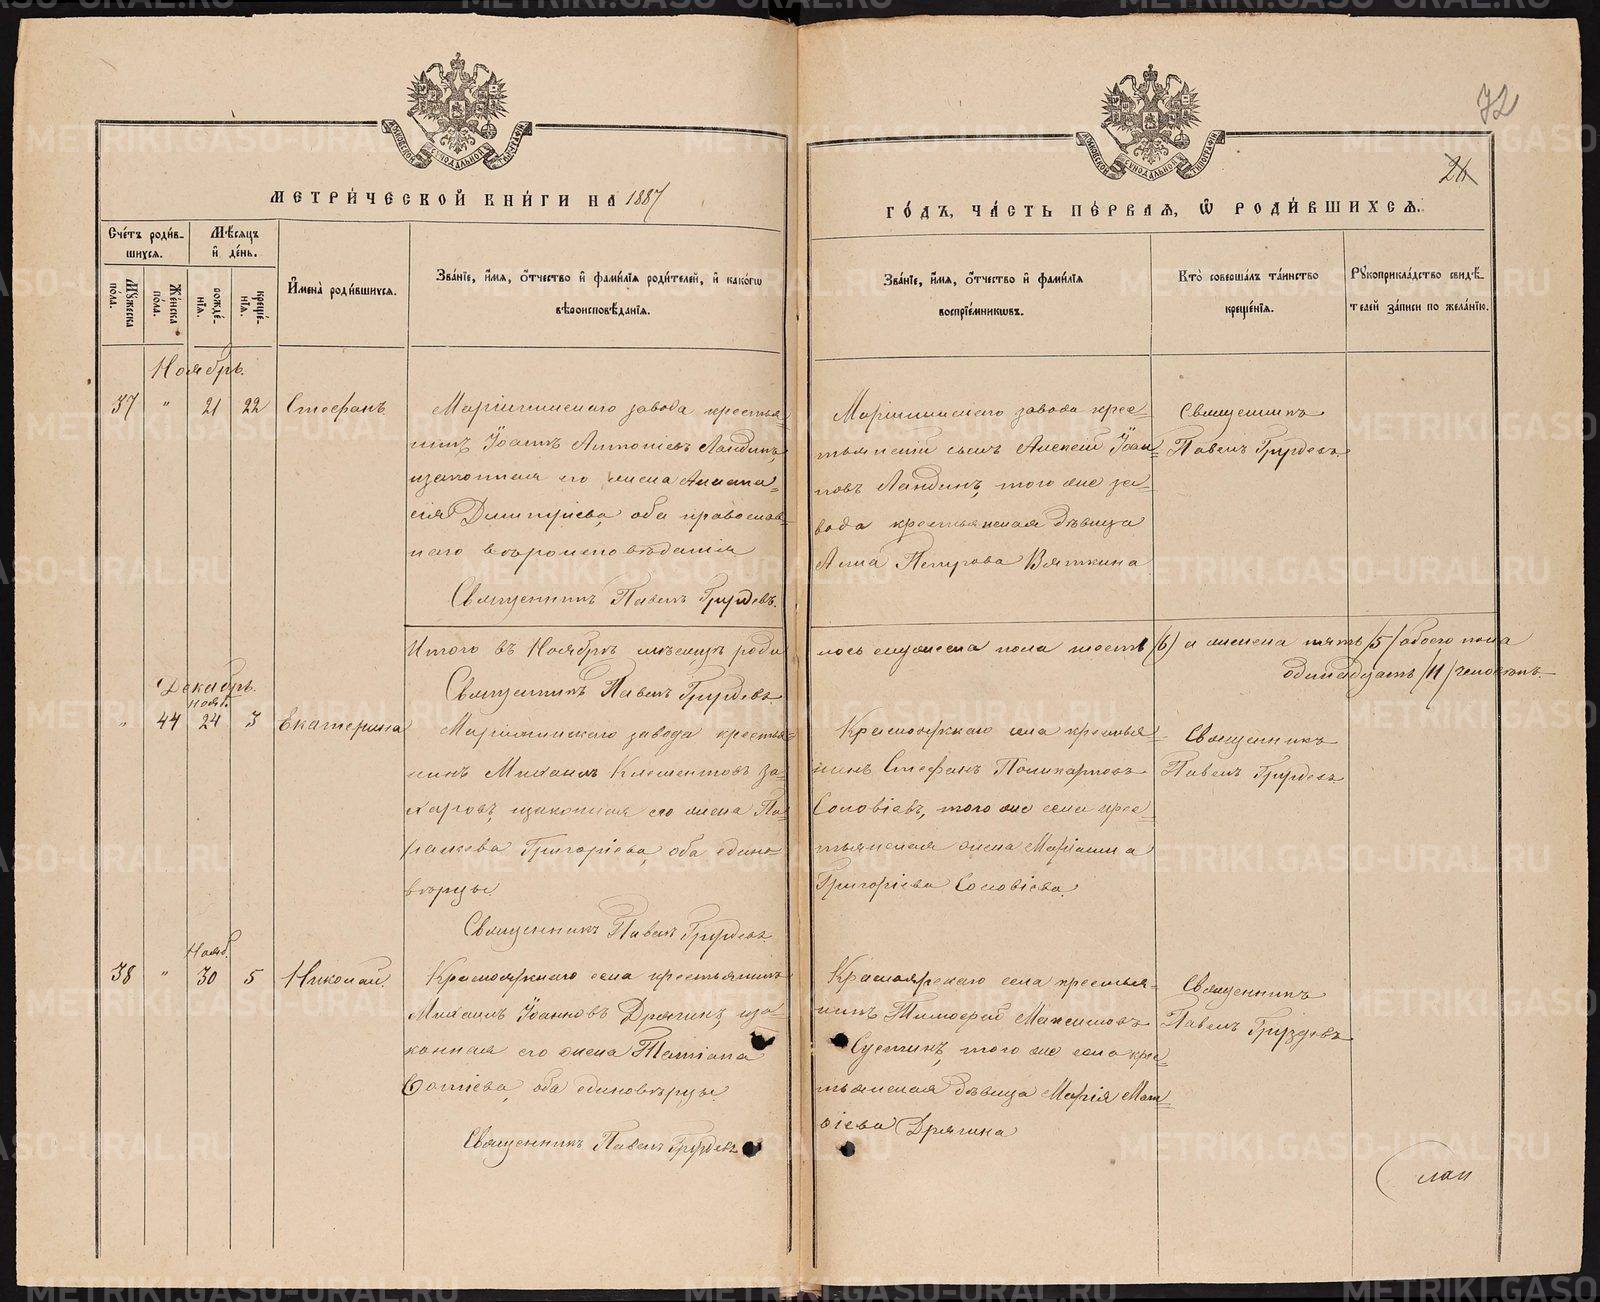 72
24
МЕТРИ́ЧЕСКОЙ КНИ́ГИ НА 1887
ГО́ДЪ, ЧА́СТЬ ПЕ́РВАЯ, Ѡ҆ РОДИ́ВШИХСЯ.
Сче́тъ роди́в-
шихся.
Мѣ́сяцъ
и҆ де́нь.
Мꙋ́жеска
по́ла.
Же́нска
по́ла.
рожде́-
нїя.
креще́-
нїя.
И҆мена̀ роди́вшихся.
Зва́нїе, и҆́мя, ѻ҆́тчество и҆ фами́лїя роди́телей, и҆ како́гѡ
вѣроисповѣ́данїя.
Зва́нїе, и҆́мя, ѻ҆́тчество и҆ фами́лїя
воспрїе́мникѡвъ.
Кто̀ соверша́лъ та́инство
креще́нїя.
Рꙋкоприкла́дство свидѣ́-
телей за́писи по жела́нїю.
Ноябрь.
37 " 21 22 Стефанъ.
Маріинскаго завода крестья
нинъ Іоаннъ Антоніевъ Ландинъ,
и законная его жена Анаста=
сія Димитріева, оба православ=
наго вѣроисповѣданія
Священникъ Павелъ Груздевъ.
Маріинскаго завода крес=
тьянскій сынъ Алексей Іоан=
новъ Ландинъ, того же за=
вода крестьянская дѣвица
Анна Петрова Вяткина
Священникъ
Павелъ Груздевъ.
Итого въ Ноябрѣ мѣсяцѣ роди
лось мужеска пола шесть /6/ а женска пять /5/ обоего пола
одинадцать /11/ человѣкъ.
Священникъ Павелъ Груздевъ.
Декабрь.
нояб.
" 44 24 3 Екатерина
Маріинскаго завода крестья=
нинъ Михаилъ Климентовъ За=
харовъ, и законная его жена Па=
раскева Григоріева, оба едино=
вѣрцы
Священникъ Павелъ Груздевъ.
Красноярскаго села крестья=
нинъ Стефанъ Поликарповъ
Соловіевъ, того же села крес=
тьянская жена Маріанна
Григоріева Соловіева.
Священникъ
Павелъ Груздевъ
Нояб.
38 " 30 5 Николай.
Красноярскаго села крестьянинъ
Михаилъ Іоанновъ Дрягинъ, и за=
конная его жена Татіана
Фотіева, оба единовѣрцы
Священникъ Павелъ Груздевъ
Красноярскаго села крестья=
нинъ Тимофей Максимовъ
того же села крес=
тьянская дѣвица Марія Мат=
ѳіева Дрягина
Священникъ
Павелъ Груздевъ